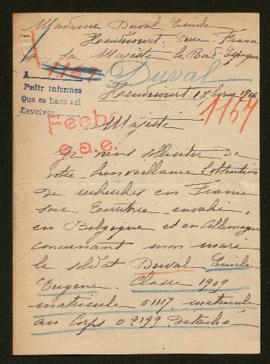 Madame Duval Emile
Heudicourt. Eure France
à sa Majesté le Roi d'Espagne
1164 Duval
A
Pedir informes
Que se haga así
Devolver
Heudicourt 1916
1164
Fech
s.a.c.
Majesté
Je viens solliciter de
votre bienveillance l'obtention
de recherches en France
sur territoire envahi, en
en Belgique et en Allemagne
concernant mon mari
le soldat Duval Emile
Eugène. Classe 1909
matricule 01117. matricule
au Corps 02199 détaché